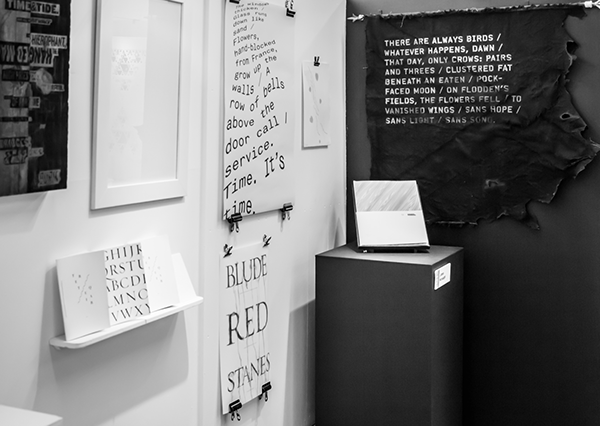 TIME&TIDE
HIEROPHANT
HANGED MAN
GHIJK
RSTU
ABCDE
LMNC
VWXY
down like
Sand /
Flowers,
hand-blocken
from France,
grow up the
walls / A
row of bells
above the
door call /
service.
Time. It's
time.
BLUDE
RED
STANES
THERE ARE ALWAYS BIRDS /
WHATEVER HAPPENS, DAWN /
THAT DAY, ONLY CROWS: PAIRS
AND THREES / CLUSTERED FAT
BENEATH AN EATEN / POCK-
FACED MOON / ON FLODDEN'S
FIELDS, THE FLOWERS FELL / TO
VANISHED WINGS / SANS HOPE /
SANS LIGHT / SANS SONG.